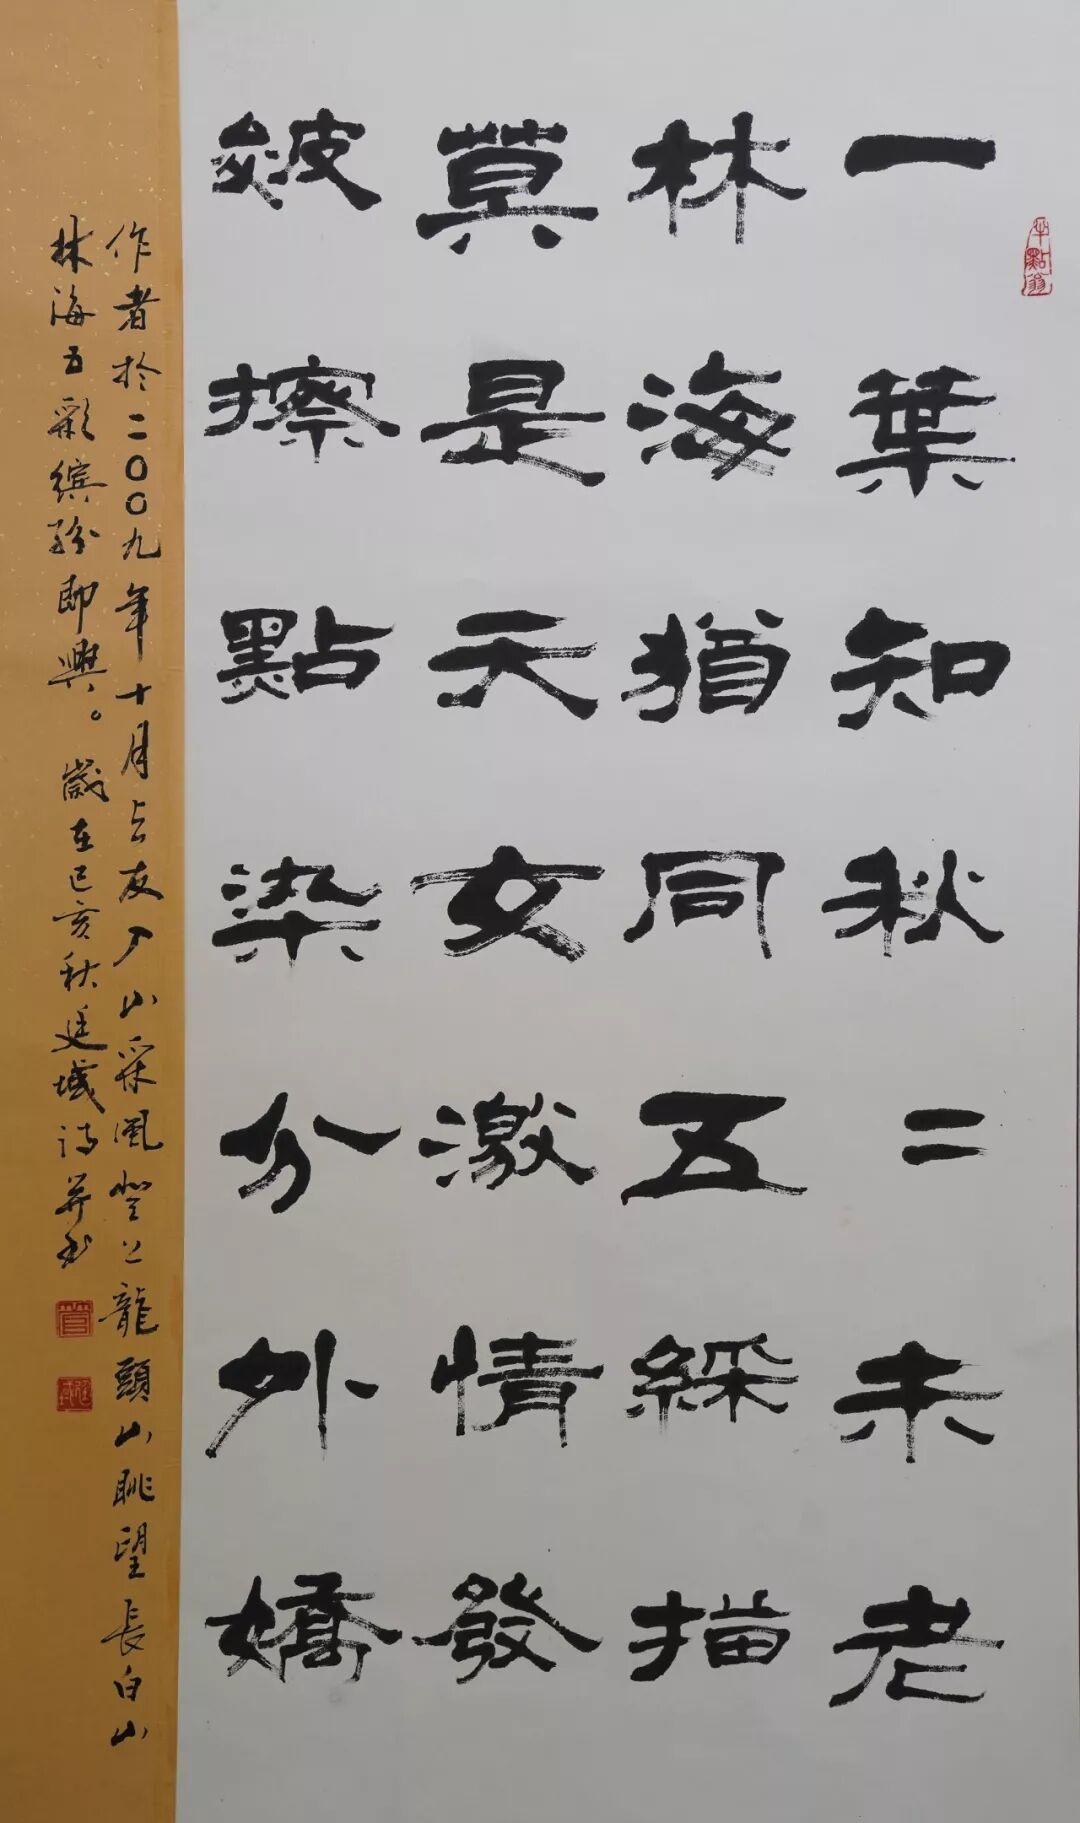 一葉知秋二未老
林海猶同五綵描
莫是天女激情發
皴擦點染分外嬌
作者於二〇〇九年十月与友入山采風登上龍頭山眺望長白山
林海五彩缤紛即興。歲在己亥秋廷域诗並书